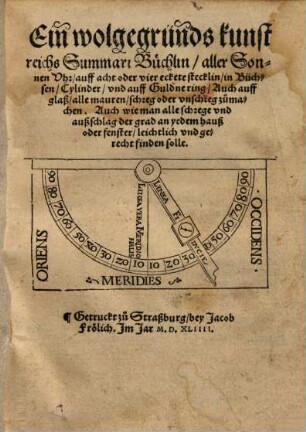 Ein wolgegründs kunst
reichs Summari Büchlin / aller Son-
nen Vhr / auff acht oder vier eckete stecklin / in Büch-
sen / Cylinder / vnd auff Guldne ring / Auch auff
glaß / alle mauren / schreg oder vnschreg zůma-
chen. Auch wie man alle schrege vnd
außschlag der grad an yedem hauß
oder fenster / leichtlich vnd ge-
recht finden solle.
90 80 70 60 50 40 30 20 10 10 20 30 50 60 70 80 90
ORIENS
MERIDIES
OCCIDENS.
LINEA VERA MERIDIO
NALIS
LINEA FI
DVCIE
¶ Getruckt zů Straßburg / bey Jacob
Frölich. Im Jar M. D. XLIIII.